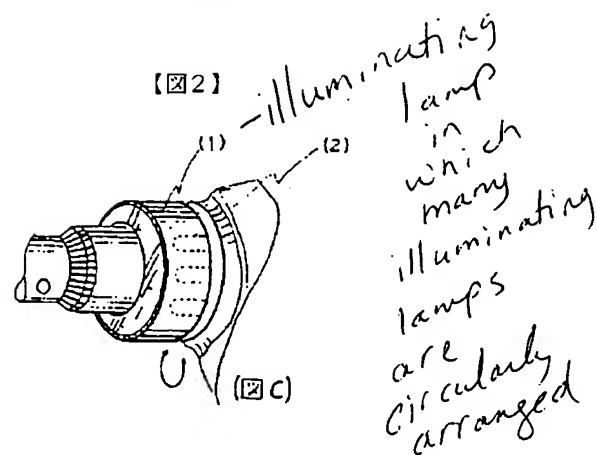 【図2】
(1) - illuminating
lamp
in
which
many
illuminating
lamps
are
circularly
arranged
(2)
(図C)